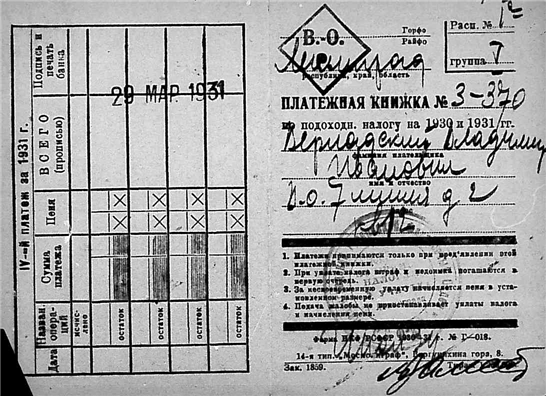 IV-ой платеж за 1931 г.
Подпись и печать банка
ВСЕГО (прописью)
Пеня
Сумма платежа
Назван. операций
Дата
исчислено
остаток
остаток
остаток
остаток
29 МАР 1931
В.-О.
Горфо
Райфо
Расп. №
группа I
Ленинград
республика, край, область
ПЛАТЕЖНАЯ КНИЖКА № 3-370
по подоходн. налогу на 1930 и 1931 гг.
Вернадский Владимир
фамилия плательщика
Иванович
имя и отчество
В.О. 7 линия д 2
1. Платежи принимаются только при пред'явлении этой
платежной книжки.
2. При уплате налога штраф и недоимки погашаются в
первую очередь.
3. За несвоевременную уплату начисляется пеня в установленном размере.
4. Подача жалобы не приостанавливает уплаты налога
и начисления пени.
Форма НКФ РСФСР 1930—31 г. № Г—018.
14-я тип. „Мосполиграф", Варгунихина гора, 8.
Зак. 1859.